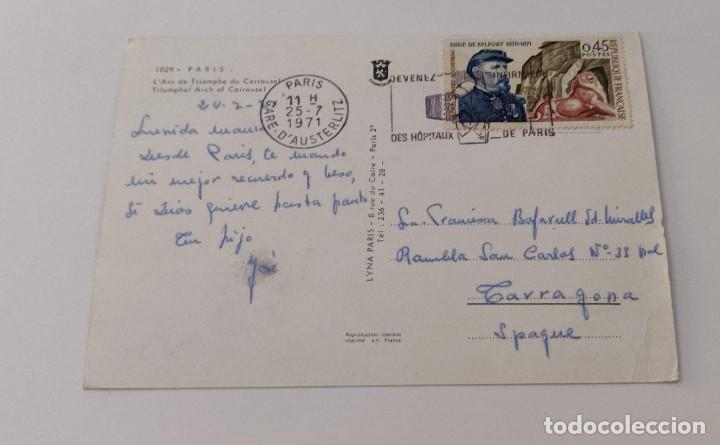 1029 - PARIS.
L'Arc de Triomphe du Carrousel
Triumphal Arch of Carrousel
24-7-
mamá
desde Paris, te mando
mi mejor recuerdo y beso,
Si Dios quiere hasta pronto
Tu hijo
José
PARIS
11 H
25-7
1971
GARE-D'AUSTERLITZ
LYNA PARIS - 8 rue du Caire - Paris 2e
Tél : 236 - 41 - 28 -
Reproduction interdite
Imprimé en France
DEVENEZ INFIRMIERE
DES HÔPITAUX DE PARIS
SIEGE DE BELFORT 1870-1871
0,45
POSTES
REPUBLIQUE FRANÇAISE
Sra Francisca Bofarull Vd. Miralles
Rambla San Carlos Nº-33 pral
Tarragona
Spagne
todocoleccion